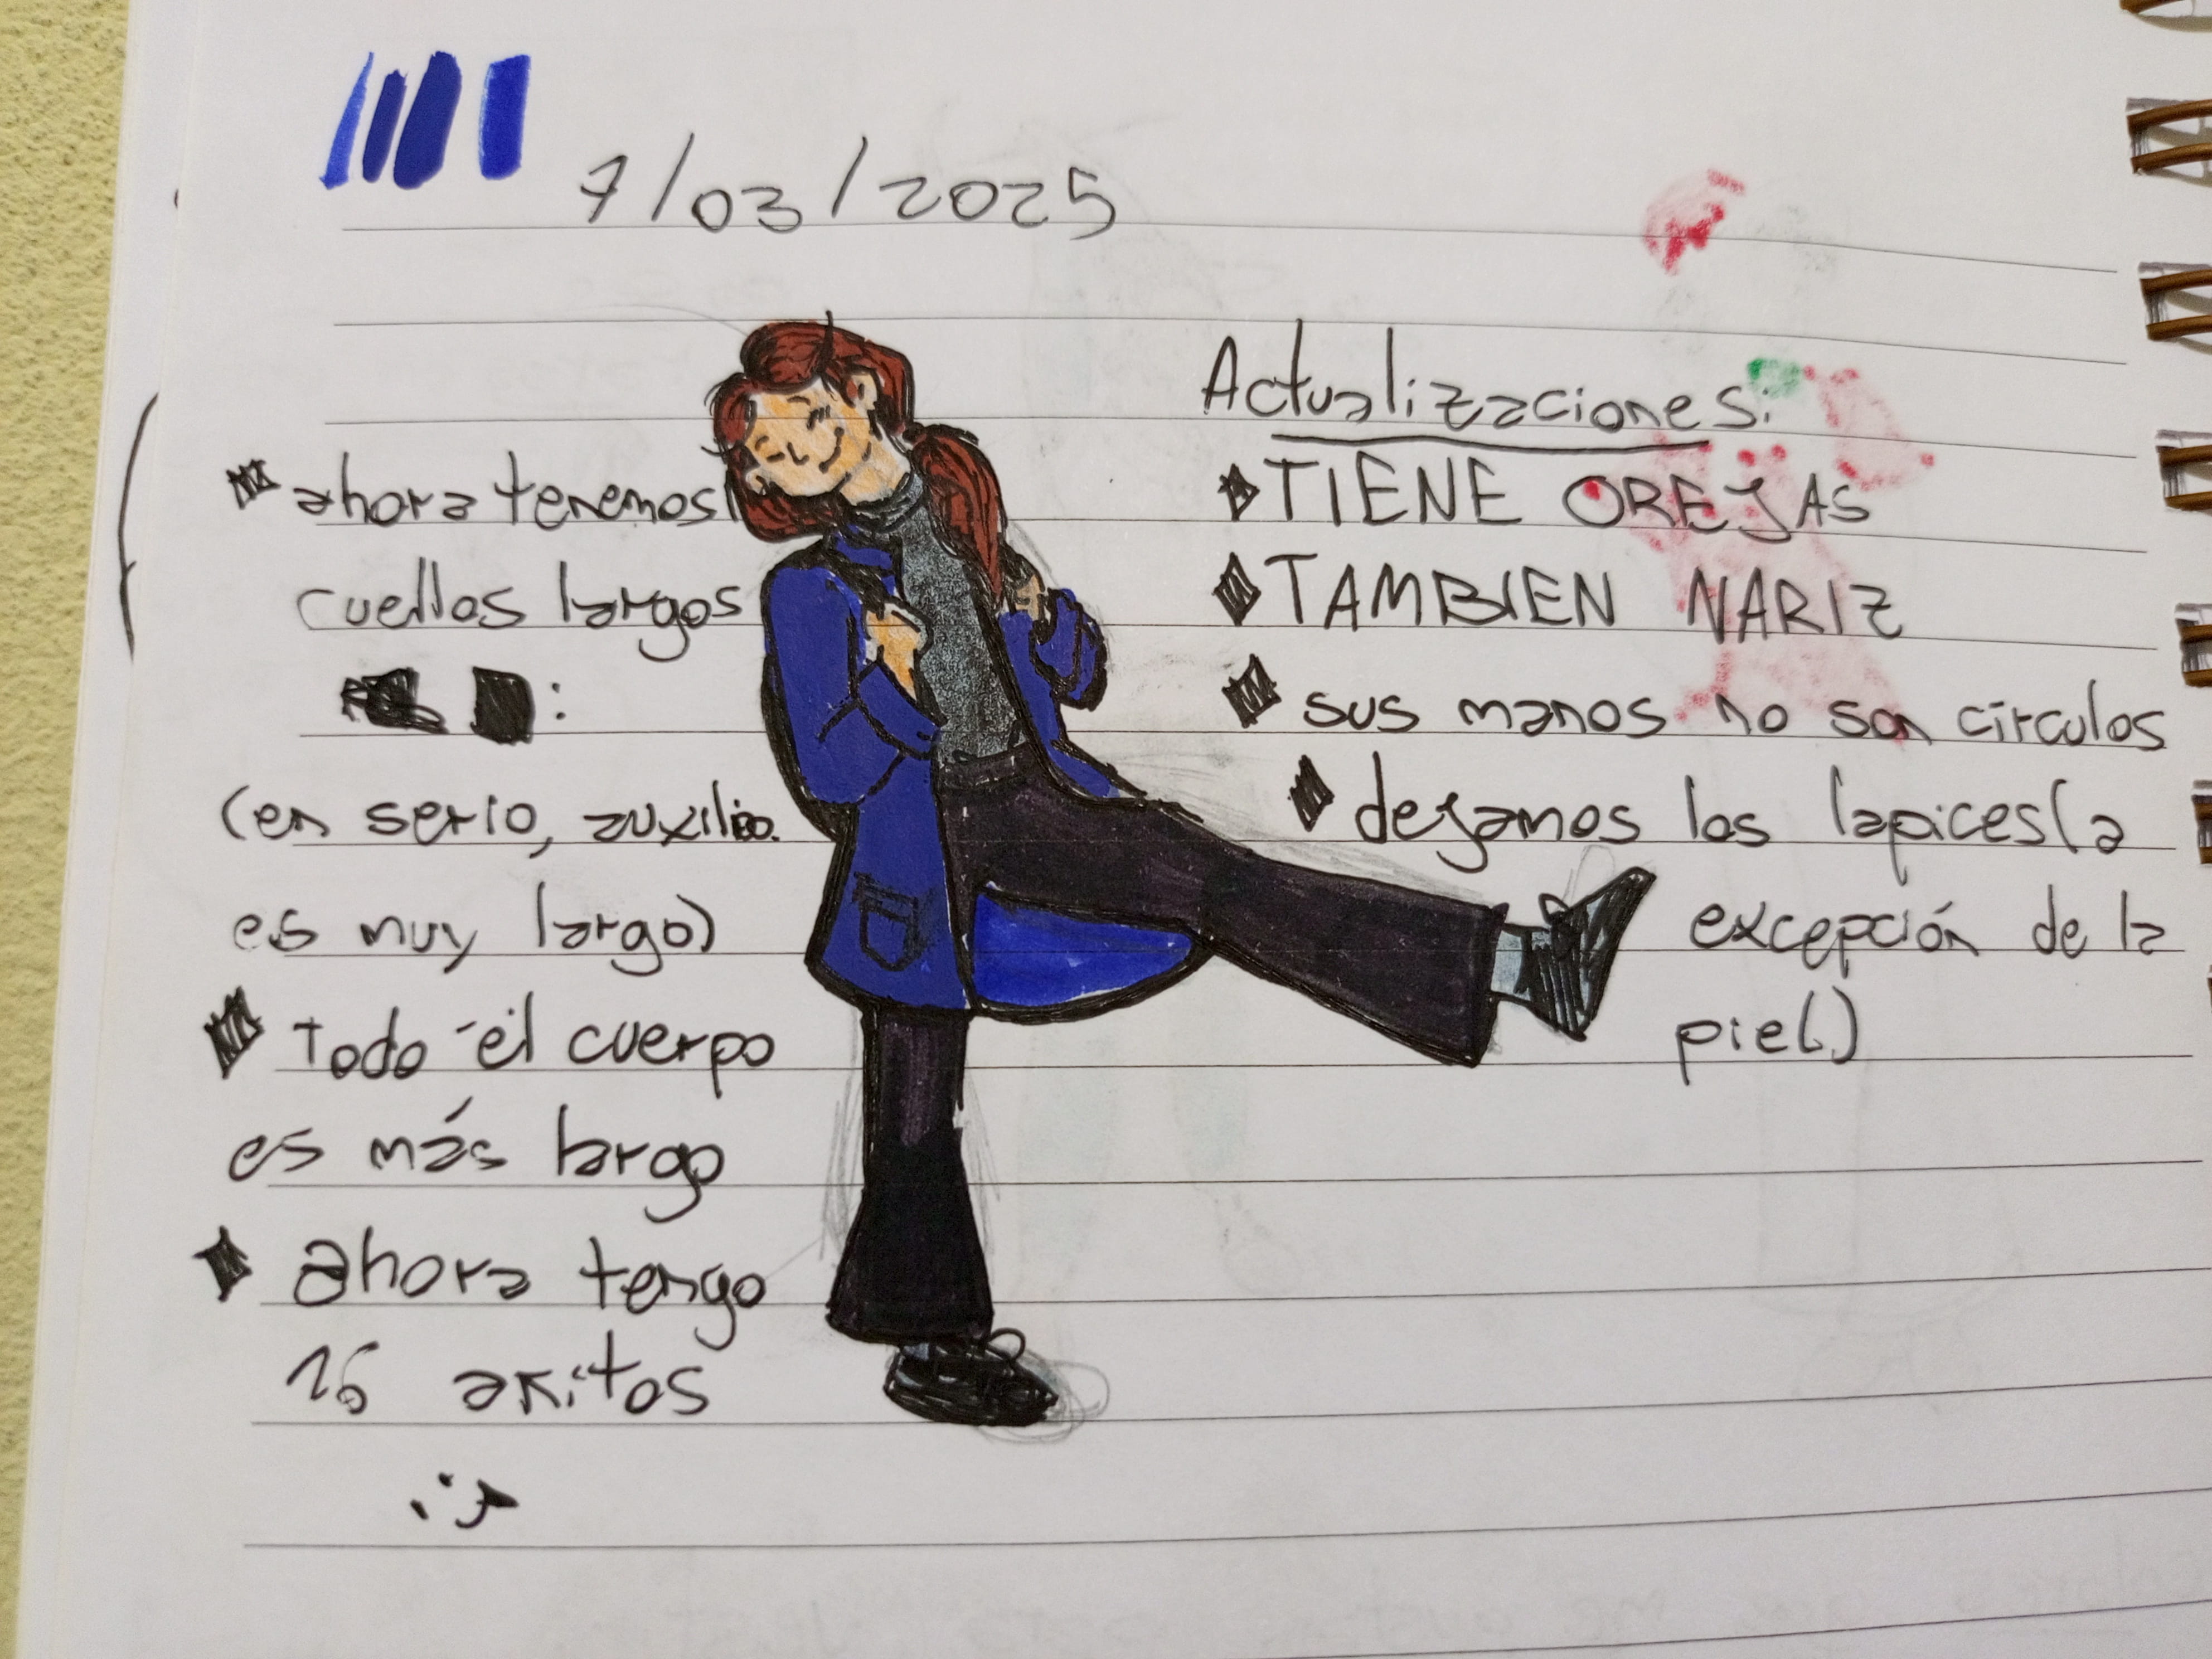 7/03/2025
Actualizaciones:
TIENE OREJAS
TAMBIEN NARIZ
sus manos no son circulos
dejamos los lapices(a
excepción de la
piel.)
ahora tenemos
cuellos largos
:
(en serio, auxilio.
es muy largo)
Todo el cuerpo
es más largo
ahora tengo
16 añitos
:)